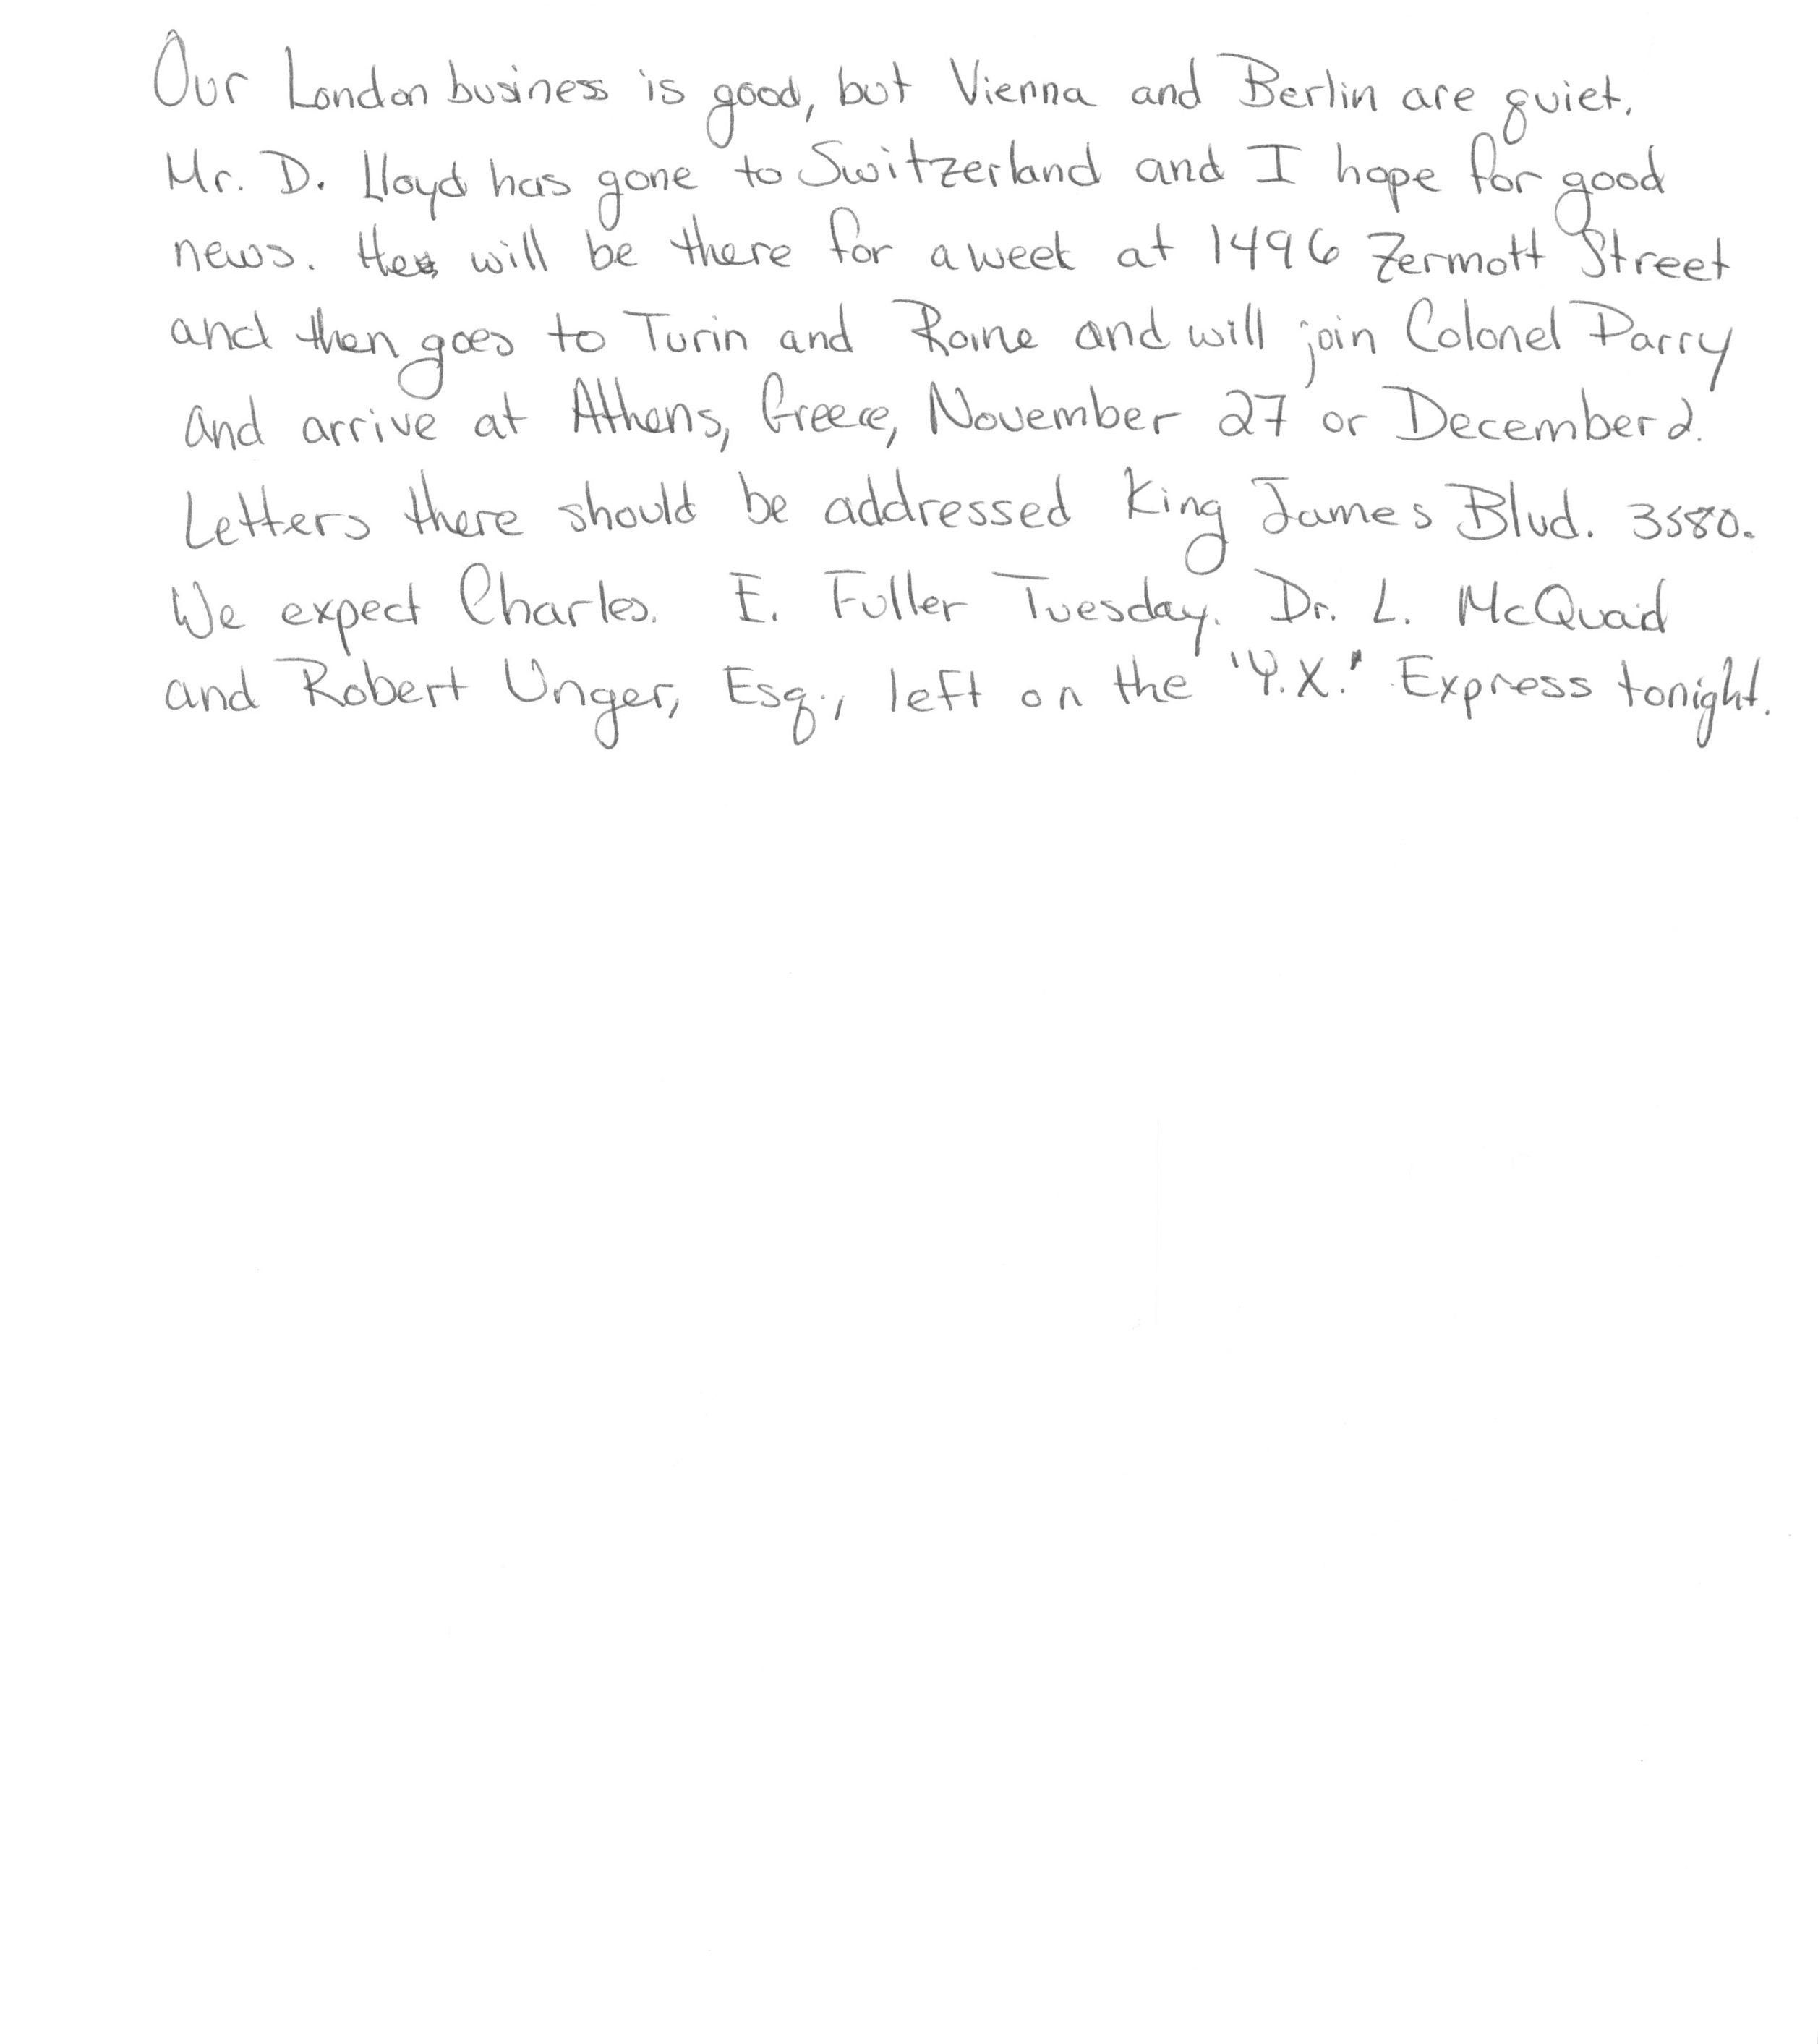 Our London business is good, but Vienna and Berlin are quiet.
Mr. D. Lloyd has gone to Switzerland and I hope for good
news. He will be there for a week at 1496 Zermott Street
and then goes to Turin and Rome and will join Colonel Parry
and arrive at Athens, Greece, November 27 or December 2.
Letters there should be addressed King James Blvd. 3580.
We expect Charles. E. Fuller Tuesday. Dr. L. McQuaid
and Robert Unger, Esq., left on the "Y.X." Express tonight.